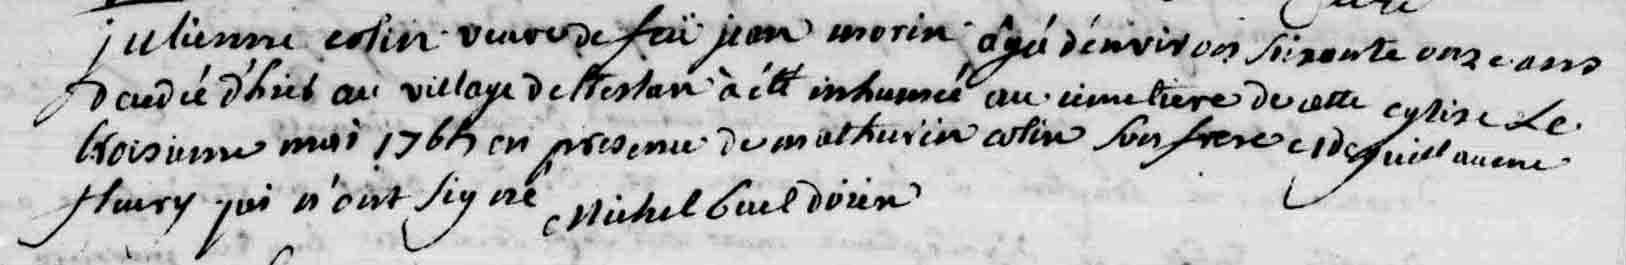 julienne colin veuve de feü jean morin âgé d'environ soixante onze ans
décédé d'hier au village de à été inhumée au cimetiere de cette eglise Le
troisieme mai 1764 en presence de mathurin colin son frere et de guillaume
fleury qui n'ont signé Michel